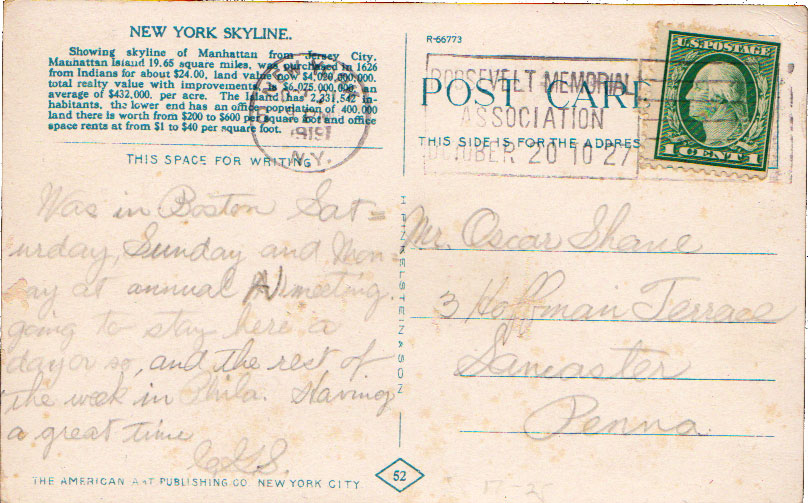 NEW YORK SKYLINE.
Showing skyline of Manhattan from Jersey City.
Manhattan Island 19.65 square miles, was purchased in 1626
from Indians for about $24.00, land value now $4,020,000,000.
total reality value with improvements, is $6,025,000,000 an
average of $432,000, per acre. The Island has 2,231,542 in-
habitants, the lower end has an office population of 400,000
land there is worth from $200 to $600 per square foot and office
space rents at from $1 to $40 per square foot.
THIS SPACE FOR WRITING
1919
N.Y.
R-66773
ROOSEVELT MEMORIAL
ASSOCIATION
OCTOBER 20 TO 27
POST CARD
THIS SIDE IS FOR THE ADDRES
U.S. POSTAGE
1 CENT 1
Was in Boston Sat=
urday, Sunday and Mon-
day at annual meeting.
going to stay here a
day or so, and the rest of
the week in Phila. Having
a great time
Mr. Oscar Shane
3 Hoffman Terrace
Lancaster
Penna
H. FINKELSTEIN & SON
THE AMERICAN ART PUBLISHING CO. NEW YORK CITY.
52